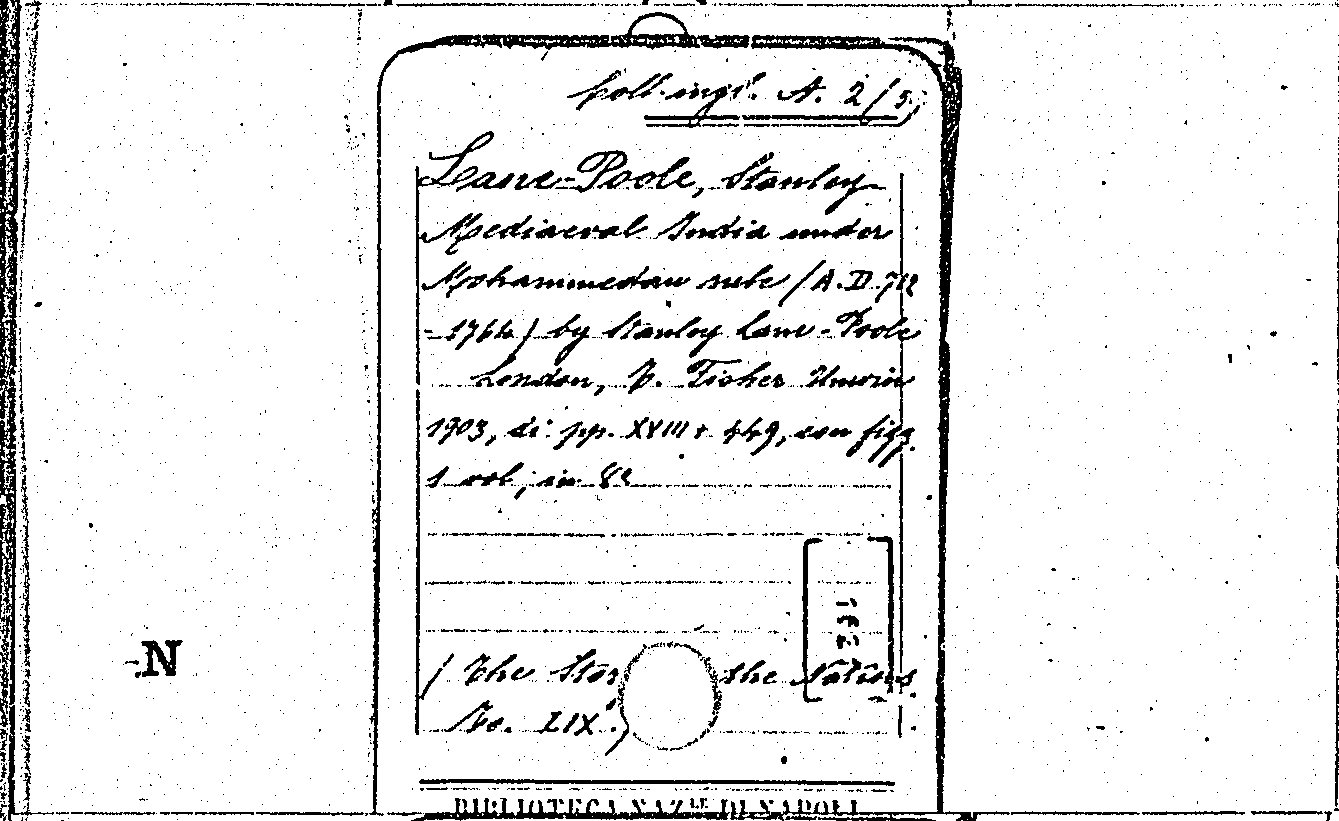 Coll. ingl. A. 2/5
Lane-Poole, Stanley
Mediaeval India under
Mohammedan rule (A.D. 712
-1764) by Stanley Lane-Poole
London, T. Fisher Unwin
1903, di pp. XXIII + 449, con figg.
1 vol, in 8º
(The Stor the Nations.
No. LIX.)
N
BIBLIOTECA NAZLE DI NAPOLI